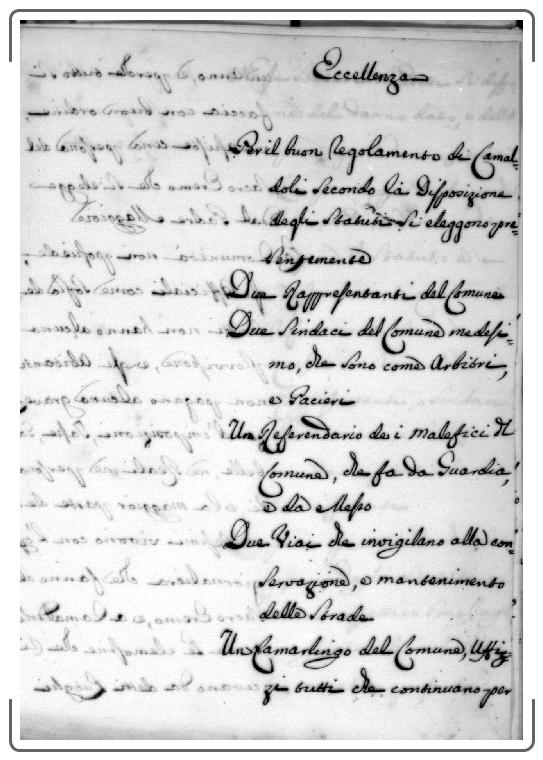 Eccellenza
Per il buon Regolamento di Camal=
doli secondo la Disposizione
degli Statuti si eleggono pre=
sentemente
Due Rappresentanti del Comune
Due Sindaci del Comune medesi=
mo, che sono come Arbitri,
e Pacieri
Un Referendario dei malefici del
Comune, che fa da Guardia,
e da Messo
Due Viai che invigilano alla con=
servazione, e mantenimento
delle Strade
Un Camarlingo del Comune, Uffiz=
zi tutti che continuano per